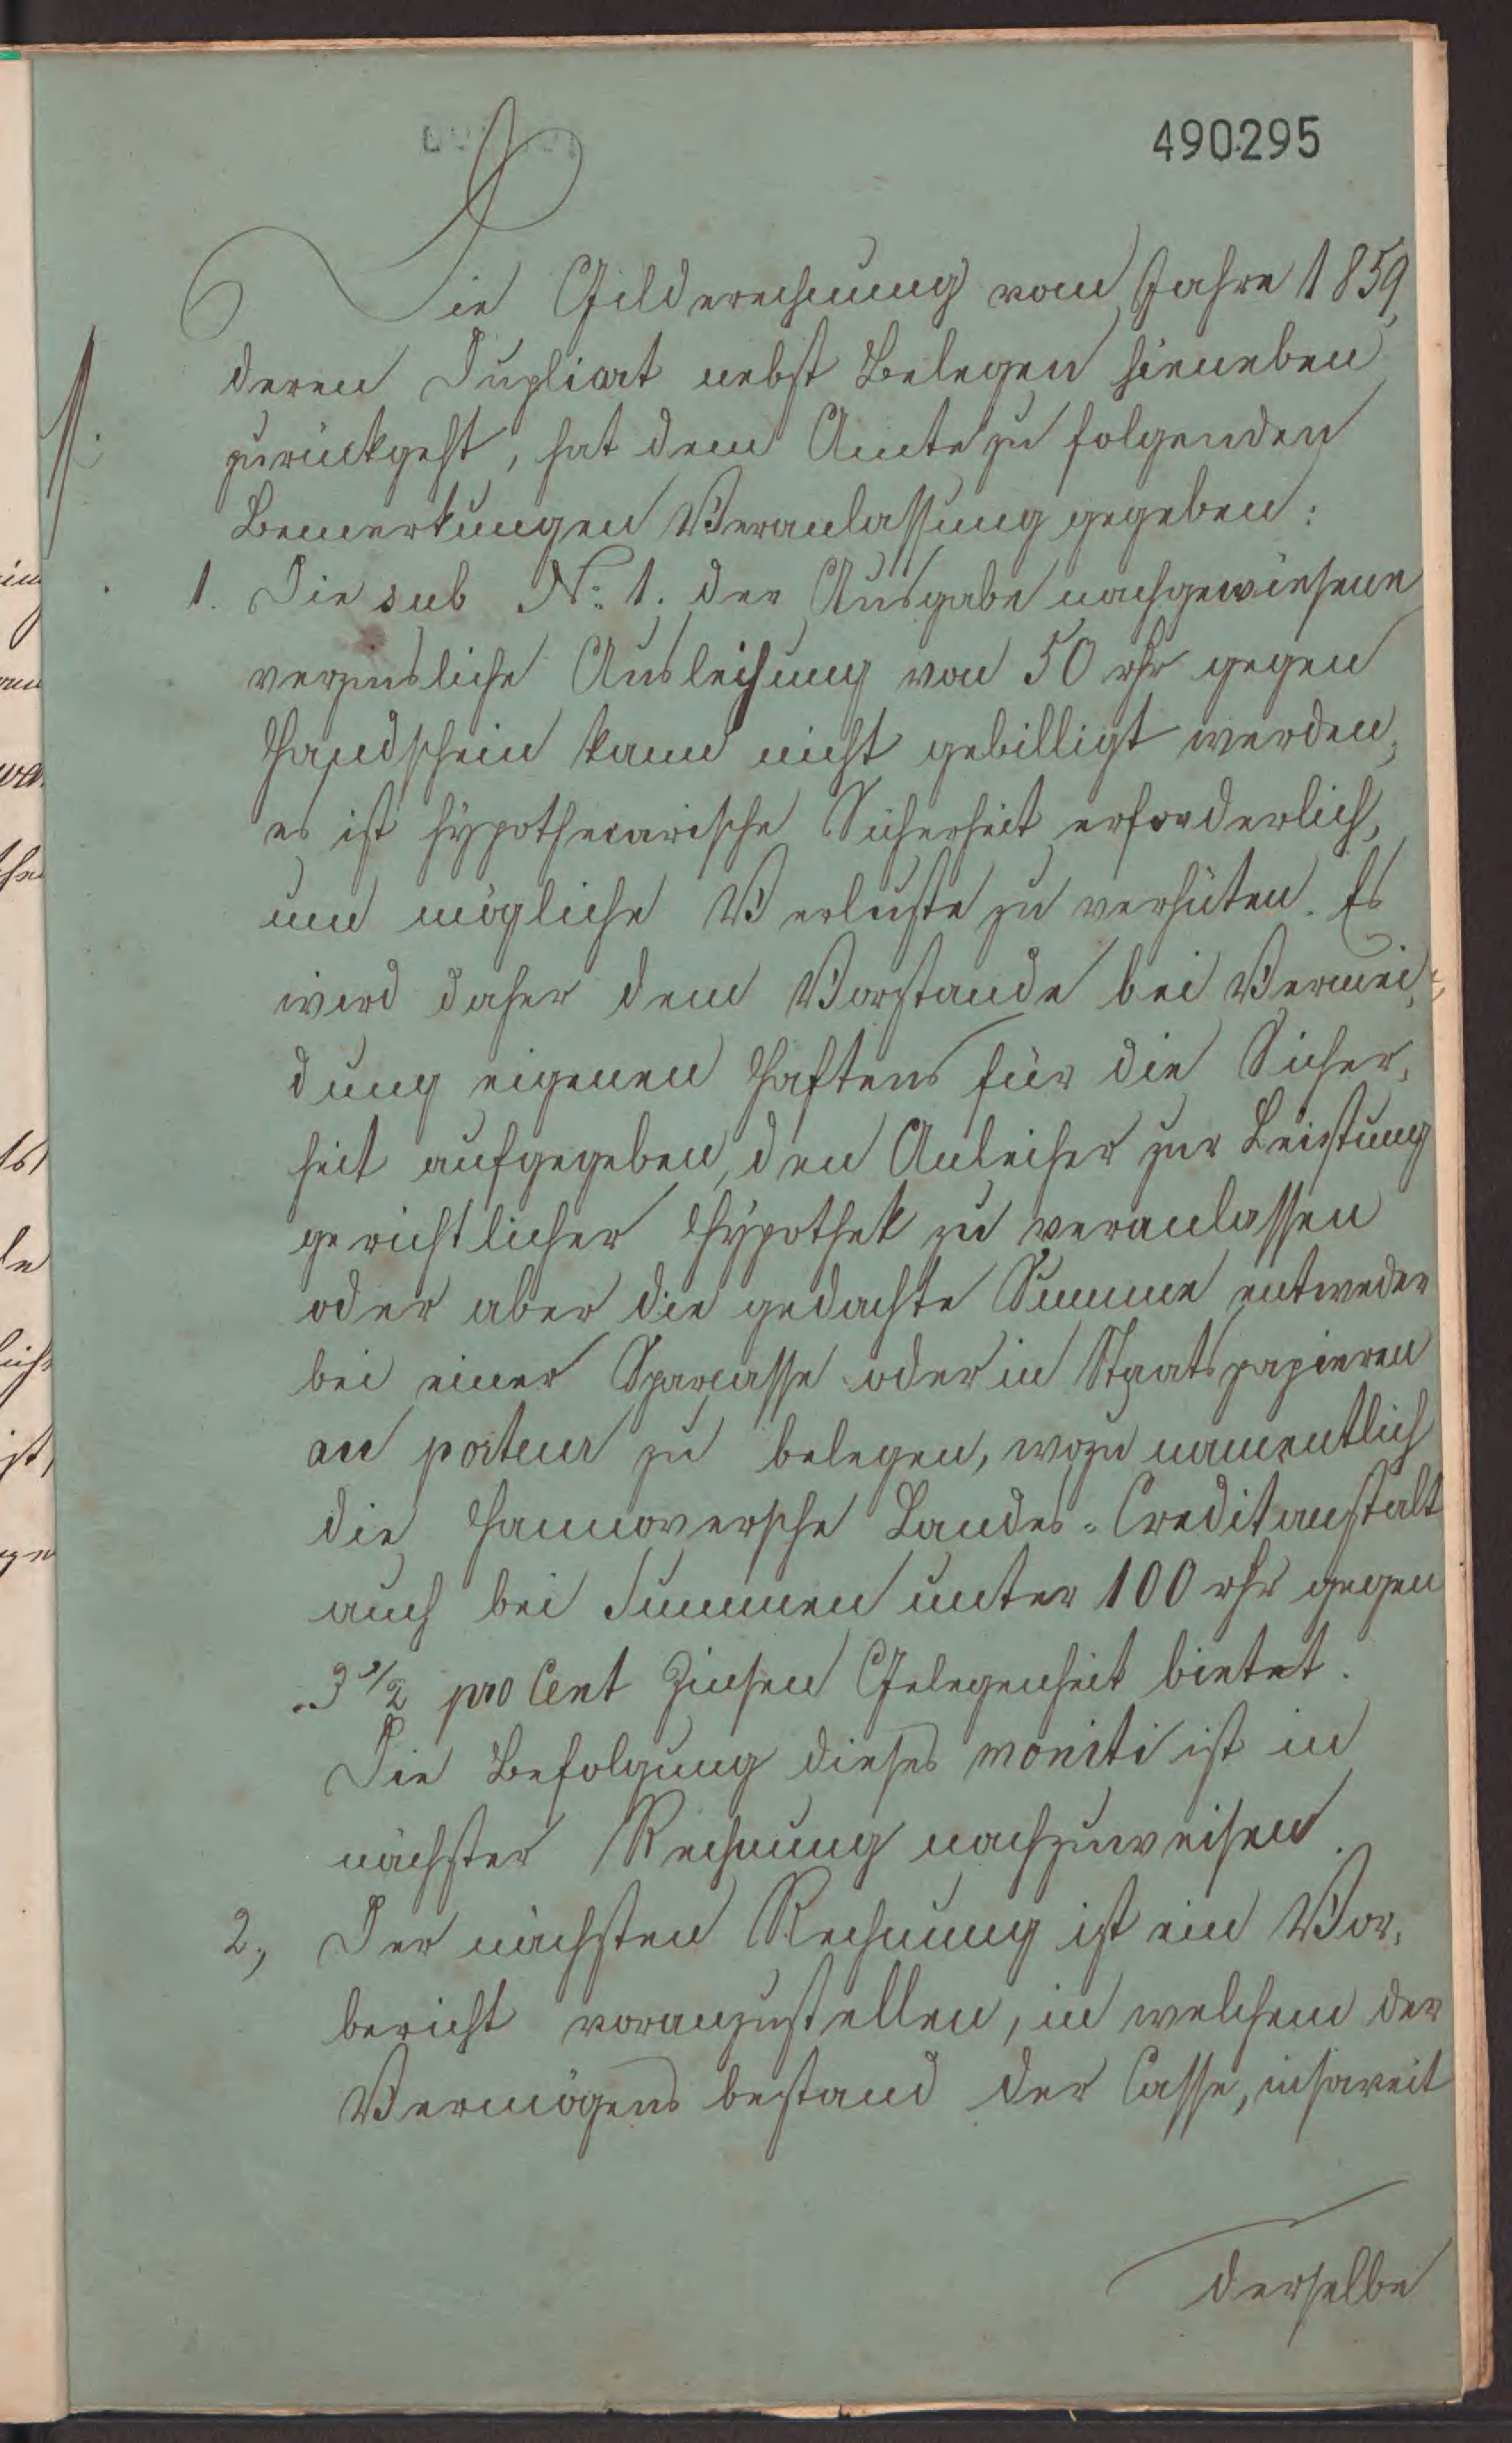 490295
Die Gilderechnung vom Jahre 1859,
deren Duplicat nebst Belegen hieneben
zurückgeht, hat dem Amte zu folgenden
Bemerkungen Veranlassung gegeben:
1. Die sub No: 1. der Ausgabe nachgewiesene
verzinsliche Ausleihung von 50 rthr gegen
Handschein kann nicht gebilligt werden,
es ist hypothecarische Sicherheit erforderlich,
um mögliche Verluste zu verhüten. Es
wird daher dem Vorstande bei Vermei-
dung eigenen Haftens für die Sicher,
heit aufgegeben, den Anleiher zur Leistung
gerichtlicher Hypothek zu veranlassen
oder aber die gedachte Summe entweder
bei einer Sparcasse oder in Staatspapieren
au porteur zu belegen, wozu namentlich
die Hannoversche Landes-Creditanstalt
auch bei Summen unter 100 rthr gegen
3 1/2 pro Cent Zinsen Gelegenheit bietet.
Die Befolgung dieses moniti ist in
nächster Rechnung nachzuweisen.
2, Der nächsten Rechnung ist ein Vor,
bericht voranzustellen, in welchem der
Vermögens bestand der Casse, insoweit
derselbe